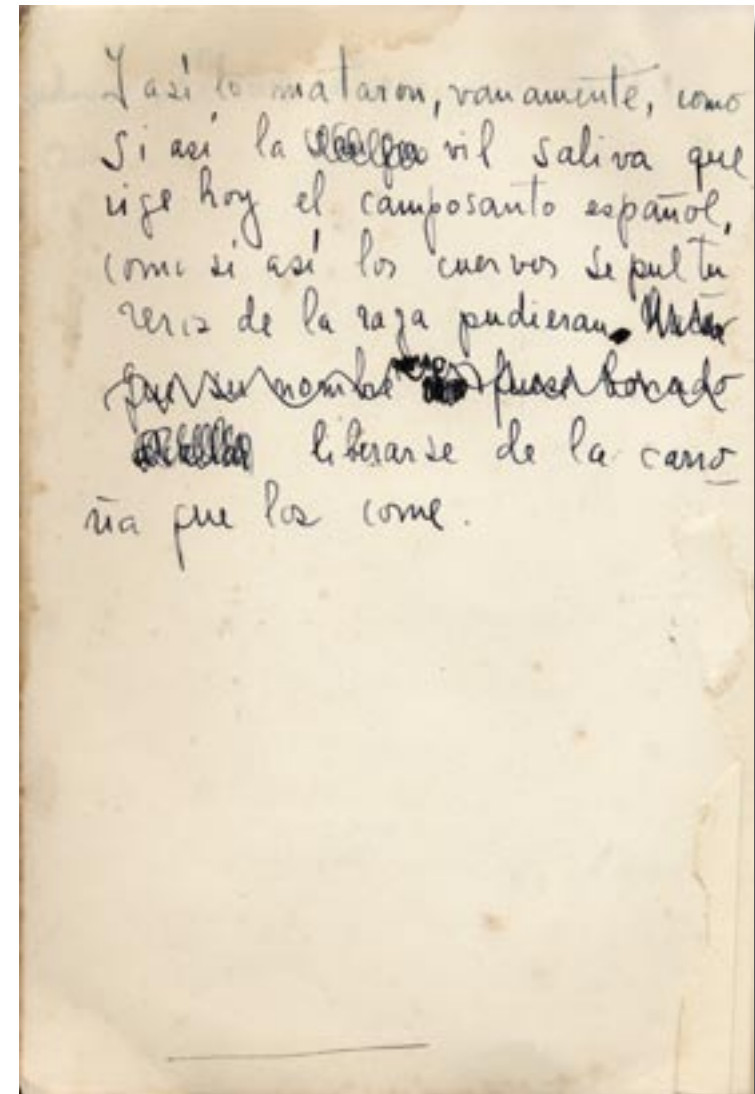 Y así lo mataron, vanamente, como
si así la vil saliva que
rige hoy el camposanto español,
como si así los cuervos sepultu
reros de la raza pudieran
que su nombre fuese borrado
liberarse de la carro
ña que los come.